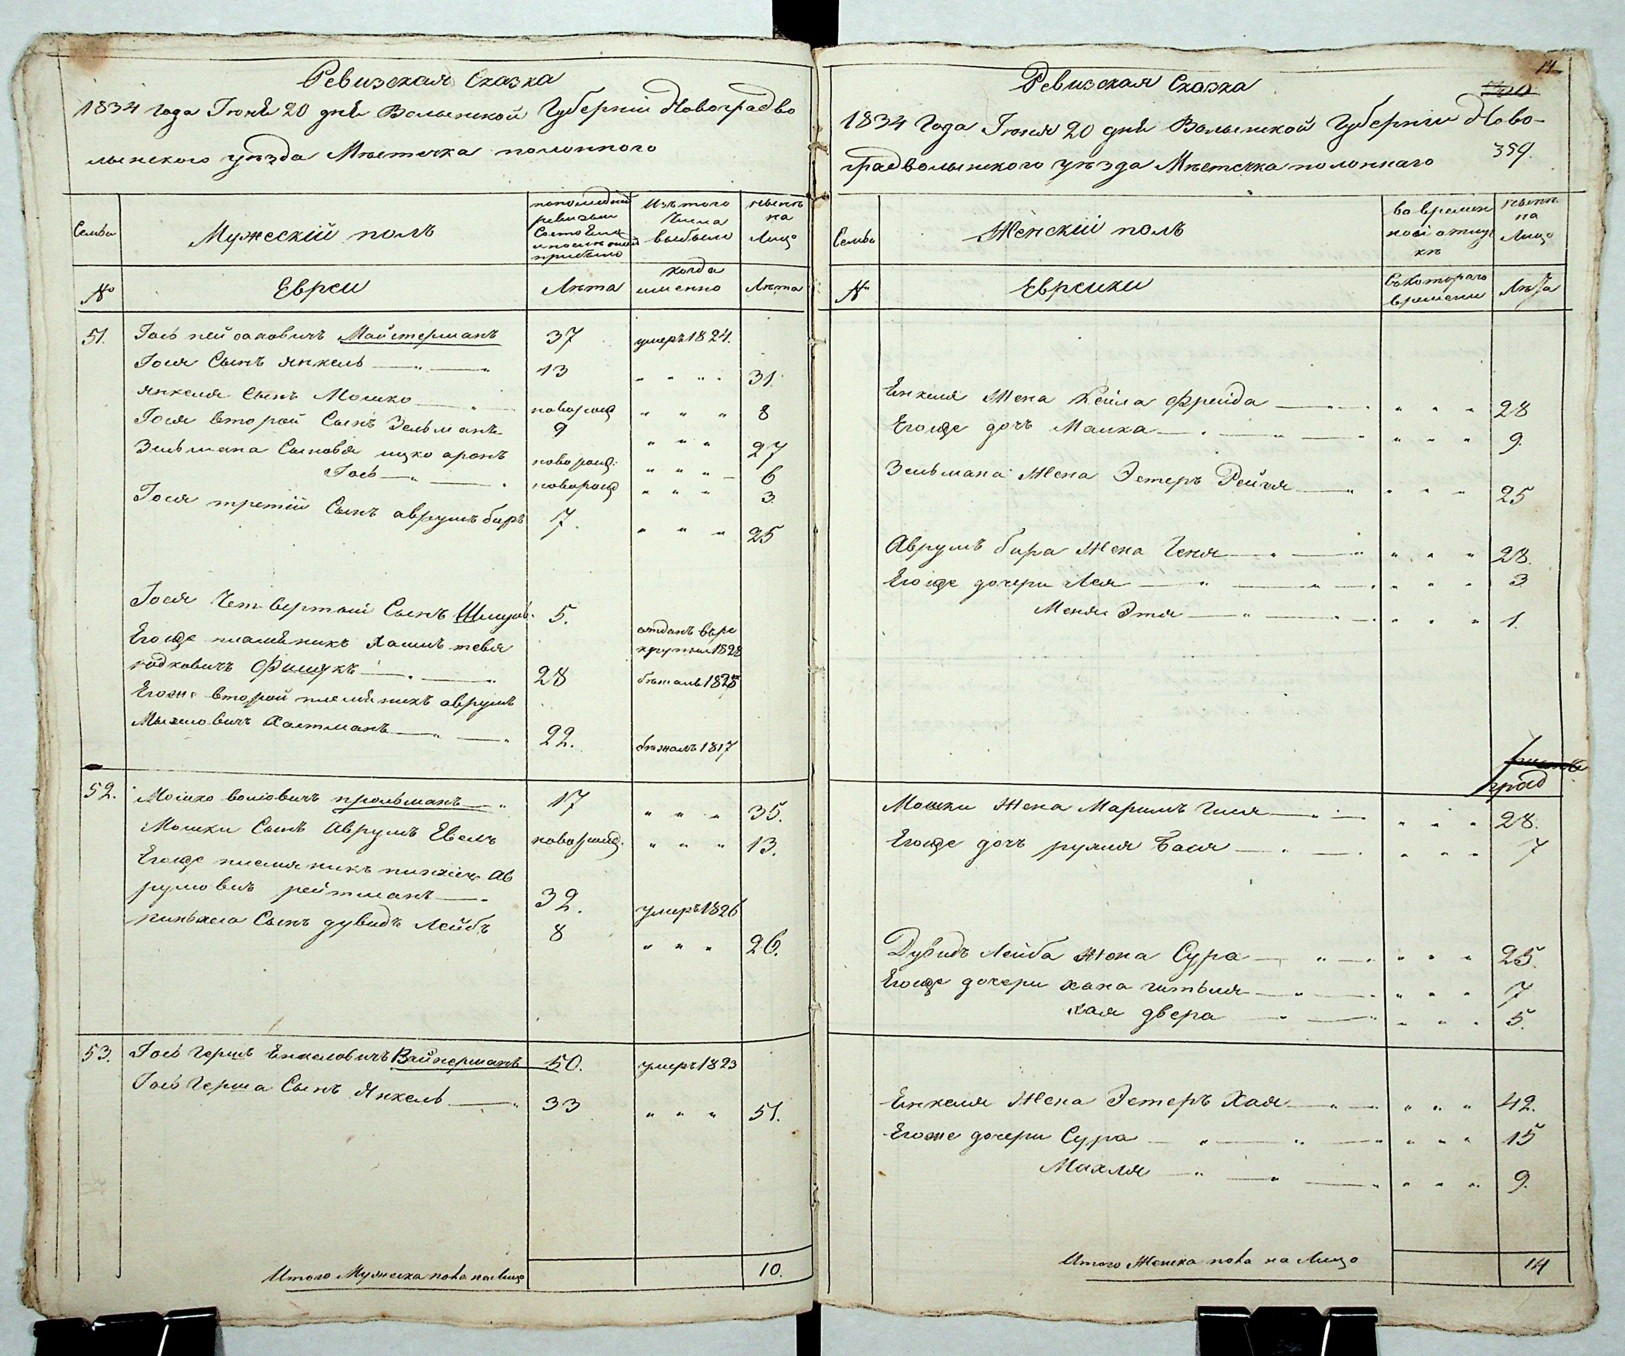 Ревизская Сказка
1834 года Іюня 20 дня Волынской Губерніи Новоградво
лынского уѣзда Мѣстечка полонного
Семьи
Мужескій полъ
по последней ревизіи состояло и после оной прибыло
Изъ того числа выбыло
нынѣ на лицо
№
Евреи
Лѣта
когда именно
Лѣта
51. Іось Майстерманъ 37 умеръ 1824.
Іося Сынъ Янкель 13 " " " 31.
Янкеля Сынъ Мошко новорожд " " " 8
Іося второй Сынъ Зельманъ 9 " " " 27
Зельмана Сыновья ицко аронъ новорожд. " " " 6
Іось новорожд " " " 3
Іося третій Сынъ аврумъ беръ 7. " " " 25
Іося Четвертый Сынъ 5. отданъ въ ре
круты 1828
Егоже племѣникъ Хаимъ тевя
28 бѣжалъ 1828
Егоже второй племѣникъ аврумъ
22. бѣжалъ 1817
52. Мошко 17 " " " 35.
Мошки Сынъ Аврумъ новорожд. " " " 13.
Егоже племяникъ Ав
румовичъ рейтманъ 32. умеръ 1826
Сынъ дувидъ Лейбъ 8 " " " 26.
53. Іось Гершъ Енкелевичъ Вайнерманъ 50. умеръ 1823
Іось Герша Сынъ Янкель 33 " " " 51.
Итого Мужеска пола на Лицо 10.
14
359.
Ревизская Сказка
1834 Года Іюня 20 дня Волынской Губерніи Ново-
градволынского уѣзда Мѣстечка полоннаго
Семьи
Женскій полъ
во времен
ной отлуч
кѣ
нынѣ
на
Лицо
№
Еврейки
Съ котораго
времени
Лѣта
Енкеля Жена Кейла Фрейда " " " 28
Егоже дочь Малка " " " 9.
Зельмана Жена Эстеръ Рейзя " " " 25
Аврумъ бера Жена Геня " " " 28.
Егоже дочери Лея " " " 3
Этя " " " 1.
Мошки Жена Маримъ " " " 28.
Егоже дочь рухля Бася " " " 7
Дувидъ Лейба Жона Сура " " " 25.
Егоже дочери хана гитьля " " " 7
хая двера " " " 5.
Енкеля Жена Эстеръ Хая " " " 42.
Егоже дочери Сура " " " 15
Махля " " " 9.
Итого Женска пола на Лицо 14